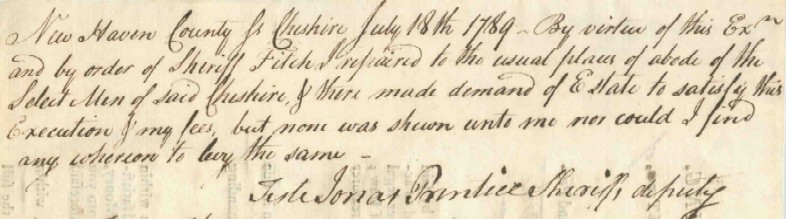 New Haven County Ss Cheshire July 18th 1789 - By virtue of this Exn
and by order of Sheriff Fitch I repaired to the usual place of abode of the
Select Men of said Cheshire, & there made demand of Estate to satisfy this
Execution & my fees, but none was shewn unto me nor could I find
any whereon to levy the same -
Teste Jonas Prentice Sheriffs deputy